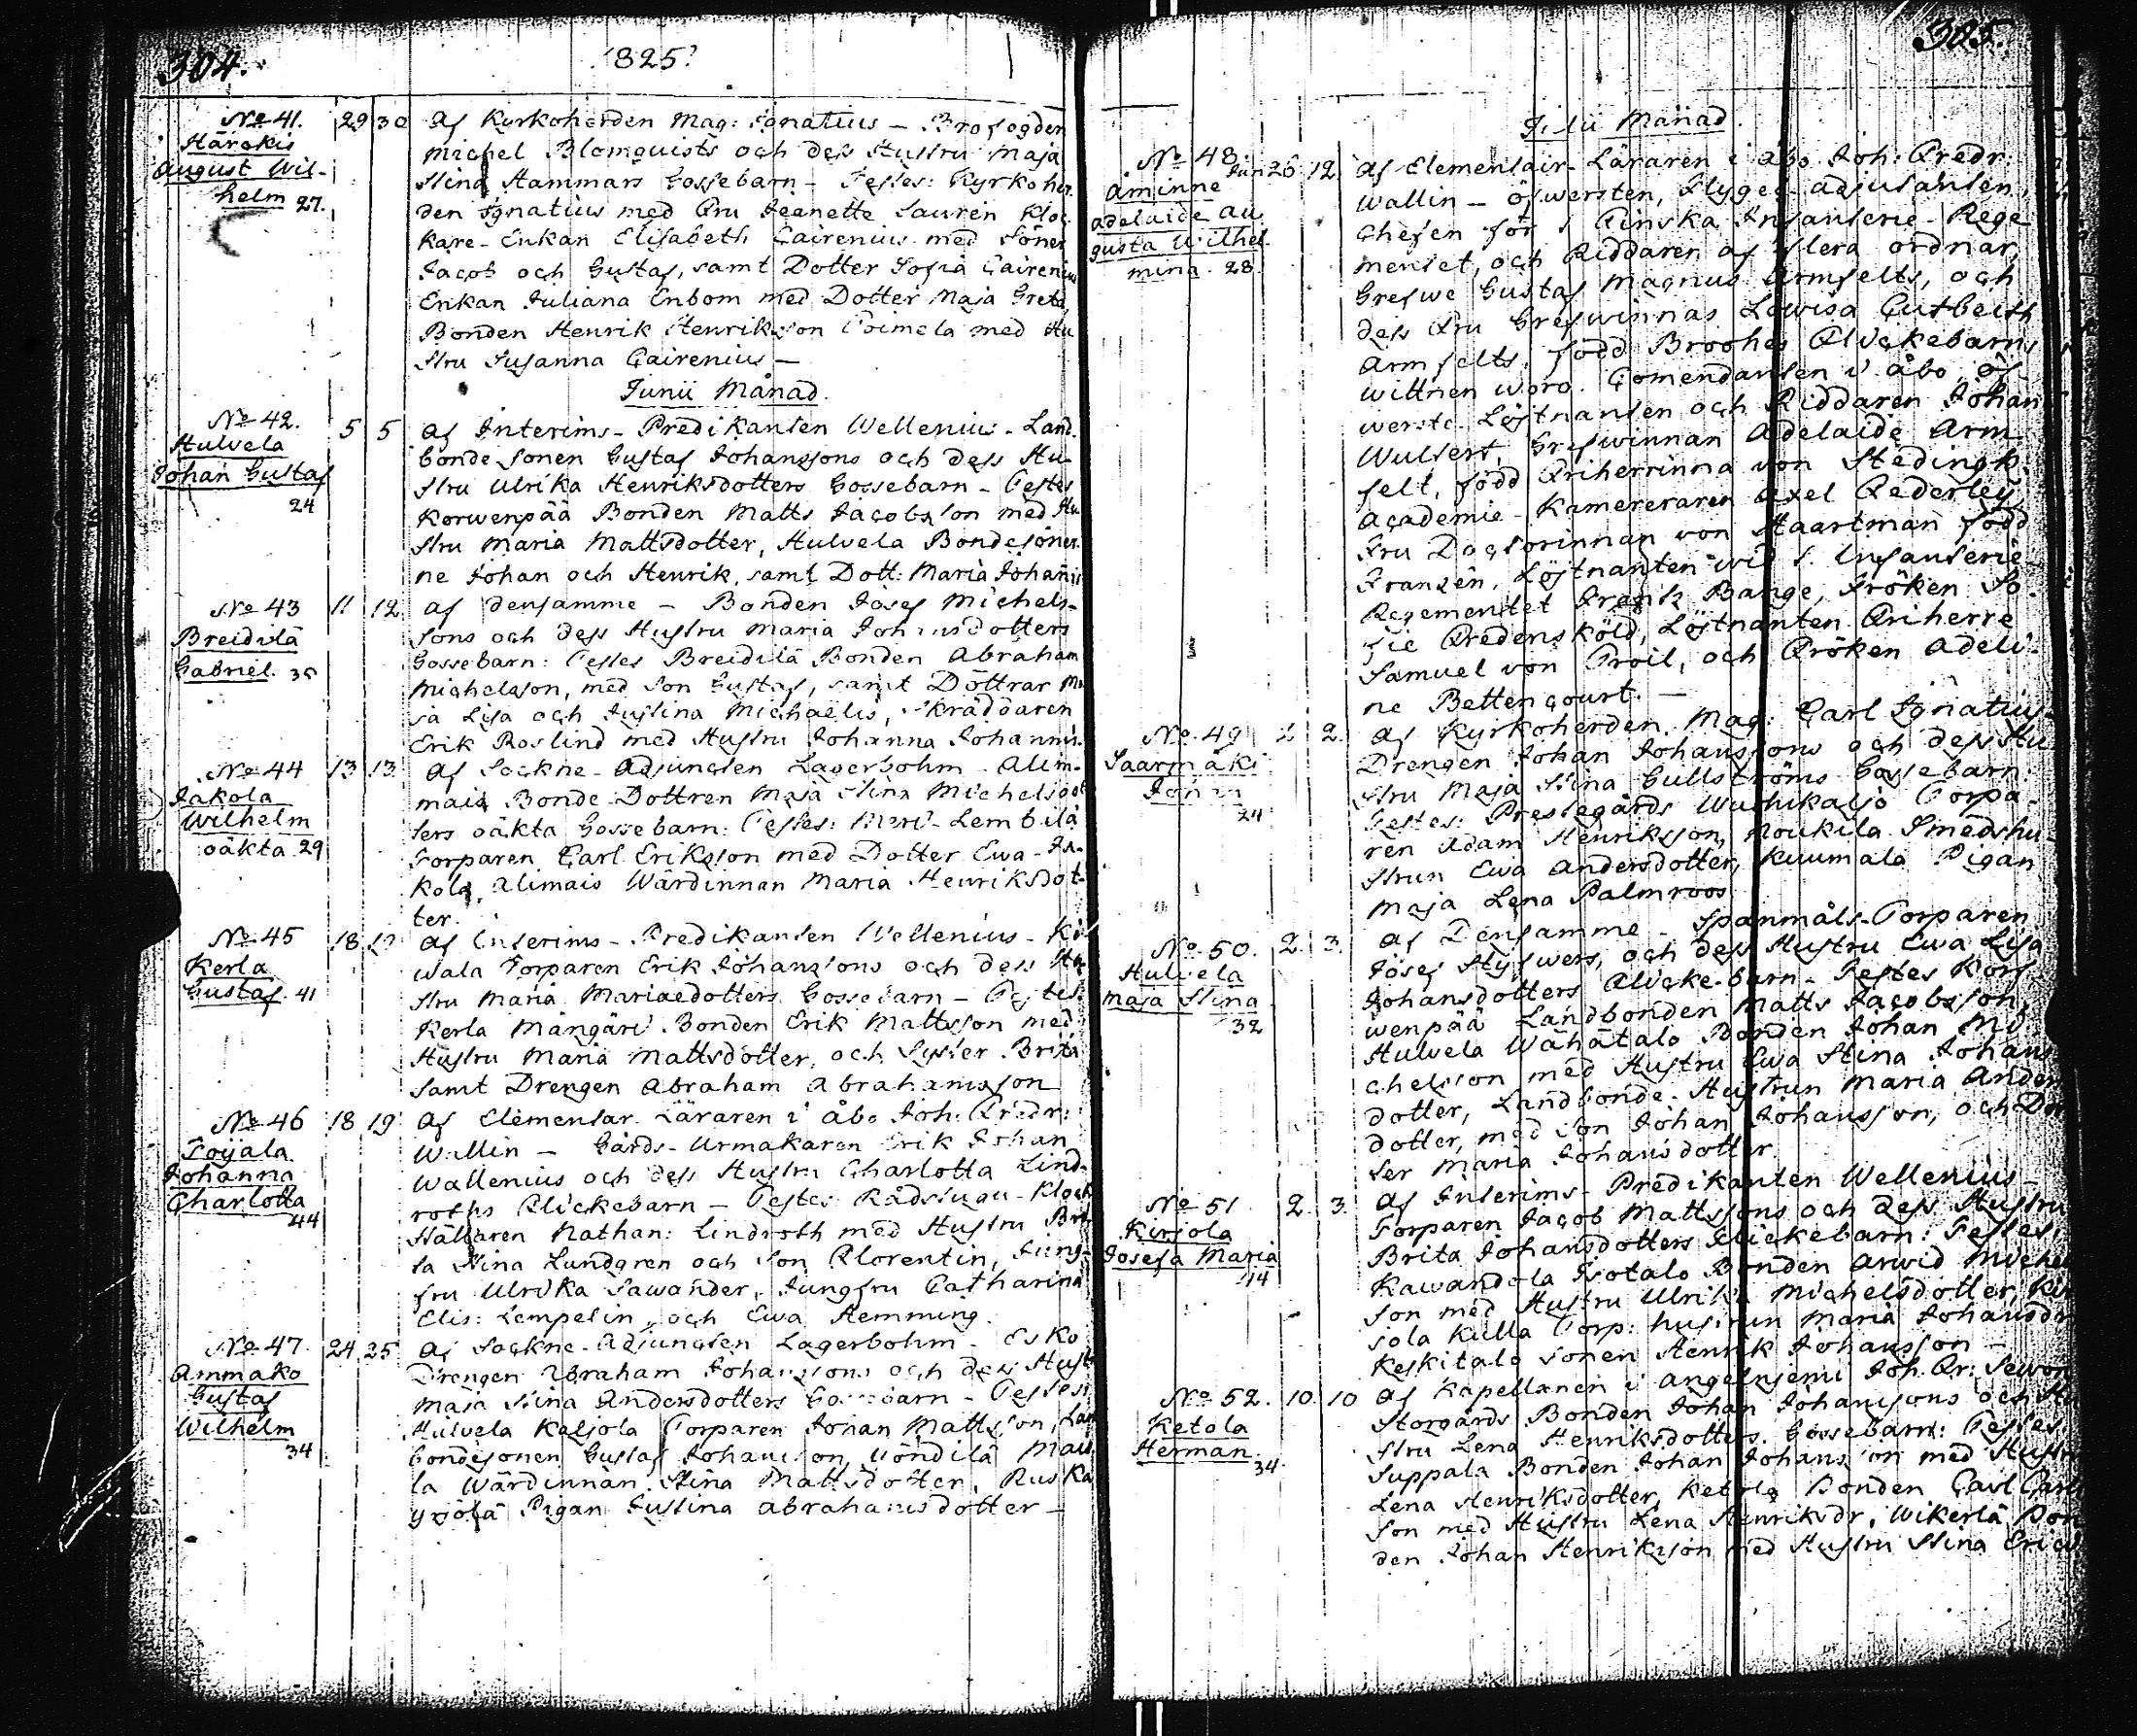 304.
1825.
No 41. 29 30 Af Kyrkoherden Mag: Ignatius - Brofogden
Härckis Michel Blomquists och dess Hustru Maja
August Wil- Stina Hammars Gossebarn - Testes: Kyrkoher-
helm 27. den Ignatius med Fru Jeanette Sauren Kloc-
kare-Enkan Elisabeth Cairenius med Söner
Jacob och Gustaf, samt Dotter Sofia Cairenius
Enkan Juliana Enbom med Dotter Maja Greta
Bonden Henrik Henriksson Toimela med Hu
stru Susanna Cairenius -
Junii Månad.
No 42. 5 5 Af Interims-Predikanten Wellenius - Land-
Hulvela bonde Sonen Gustaf Johanssons och dess Hu-
Johan Gustaf stru Ulrika Henriksdotters Gossebarn - Testes
24 Korwenpää Bonden Matts Jacobsson med Hu
stru Maria Mattsdotter, Hulvela Bondesöner-
ne Johan och Henrik, samt Dott: Maria Johannis
No 43 11 12 Af densamme - Bonden Josef Michels-
Breidilä sons och dess Hustru Maria Johansdotters
Gabriel. Gossebarn: Testes Breidilä Bonden Abraham
Michelsson, med Son Gustaf, samt Döttrar Ma
ja Lisa och Justina Michaelis, Skräddaren
Erik Roslind med Hustru Johanna Johannis.
No 44 13 13 Af Sockne-Adjuncten Lagerbohm - Alim-
Jakola mais Bonde-Dottren Maja Stina Michelsdot
Wilhelm ters oäkta Gossebarn: Testes: Lembilä
oäkta 29 Torparen Carl Eriksson med Dotter Ewa - Ja-
kola, Alimais Wärdinnan Maria Henriksdot-
ter.
No 45 18 Af Interims-Predikanten Wellenius - Ki-
Kerla wala Torparen Erik Johanssons och dess Hu-
Gustaf. 41 stru Maria Mariaedotters Gossebarn - Testes
Kerla Mångäri Bonden Erik Mattsson med
Hustru Maria Mattsdotter, och Syster Brita
samt Drengen Abraham Abrahamsson
No 46 18 19 Af Elementar Läraren i Åbo Joh: Fredr:
Toijala Wallin - Gårds-Urmakaren Erik Johan
Johanna Wallenius och dess Hustru Charlotta Lind-
Charlotta roths Flickebarn - Testes Rådstugu-Klock
44 Hållaren Nathan: Lindroth med Hustru Bri
ta Stina Lundgren och Son Florentin, Jung-
fru Ulrika Sawander, Jungfru Catharina
Elis: Lempelin, och Ewa Flemming.
No 47. 24 25 Af Sockne-Adjuncten Lagerbohm - Esko
Ammako Drengen Abraham Johanssons och dess Hust
Gustaf Maja Stina Andersdotters Gossebarn - Testes:
Wilhelm Hulvela Kaljola Torparen Johan Mattsson, Lan
34 bondesonen Gustaf Johansson,
la Wärdinnan Stina Mattsdotter, Ruska
yrjölä Pigan Justina Abrahamsdotter -
305.
Julii Månad.
No 48 Jun 26 12 Af Elementair-Läraren i Åbo Joh: Fredr:
Aminne Wallin - Öfwersten, Flygel-Adjutanten,
Adelaide Au Chefen för 1 Finska Infanterie-Rege
gusta Wilhel- mentet, och Riddaren af flera ordnar,
mina. 28. Grefwe Gustaf Magnus Armfelts, och
dess Fru Grefwinnas Lowisa Cutbeith
Armfelts, född Broohes Flickebarn,
Wittnen woro. Comendanten i Åbo Öf-
werste-Löjtnanten och Riddaren Johan
Wulfert, Grefwinnan Adelaide Arm-
felt, född Friherrinna von Stedingk,
Academie-Kamereraren Axel Federley,
Fru Doctorinnan von Haartman född
Franzén, Löjtnanten wid 1. Infanterie-
Regementet Frank Bange, Fröken So-
fie Fredensköld, Löjtnanten Friherre
Samuel von Troil, och Fröken Adeli-
ne Bettencourt. -
No 49 2 2. Af Kyrkoherden Mag: Carl Ignatius-
Saarmäki Drengen Johan Johanssons och dess Hu
24 stru Maja Stina Gullströms Gossebarn:
Testes: Prestegårds Torpa-
ren Adam Henriksson, Noukila Smedshu-
strun Ewa Andersdotter, Kuumala Pigan
Maja Lena Palmroos
No 50. 2. 3. Af Densamme - Spanmåls-Torparen
Hulvela Josef Hyfwers, och dess Hustru Ewa Lisa
Maja Stina Johansdotters Flicke-barn - Testes Korf-
32 wenpää Landbonden Matts Jacobsson,
Hulvela Wähätalo Bonden Johan Mi-
chelsson med Hustru Ewa Stina Johans
dotter, Landbonde-Hustrun Maria Anders
dotter, med Son Johan Johansson, och Dot
ter Maria Johansdotter.
No 51 2. 3. Af Interims-Predikanten Wellenius -
Kirjola Torparen Jacob Mattssons och dess Hustru
Josefa Maria Brita Johansdotters Flickebarn: Testes:
44 Kawandola Isotalo Bonden Arvid Michel
son med Hustru Ulrika Michelsdotter, Kir
jola Kulla Torp: hustrun Maria Johansdr
Keskitalo sonen Henrik Johansson -
No 52. 10. 10 Af Kapellanen i Angelnjemi Joh. Fr: Sewon
Ketola Storgårds Bonden Johan Johanssons och Hu
Herman. stru Lena Henriksdotters Gossebarn: Testes.
34. Suppala Bonden Johan Johansson med Hustru
Lena Henriksdotter, Ketola Bonden Carl Carl
son med Hustru Lena Henriksdr, Wikerlä Bon
den Johan Henriksson med Hustru Stina Erics